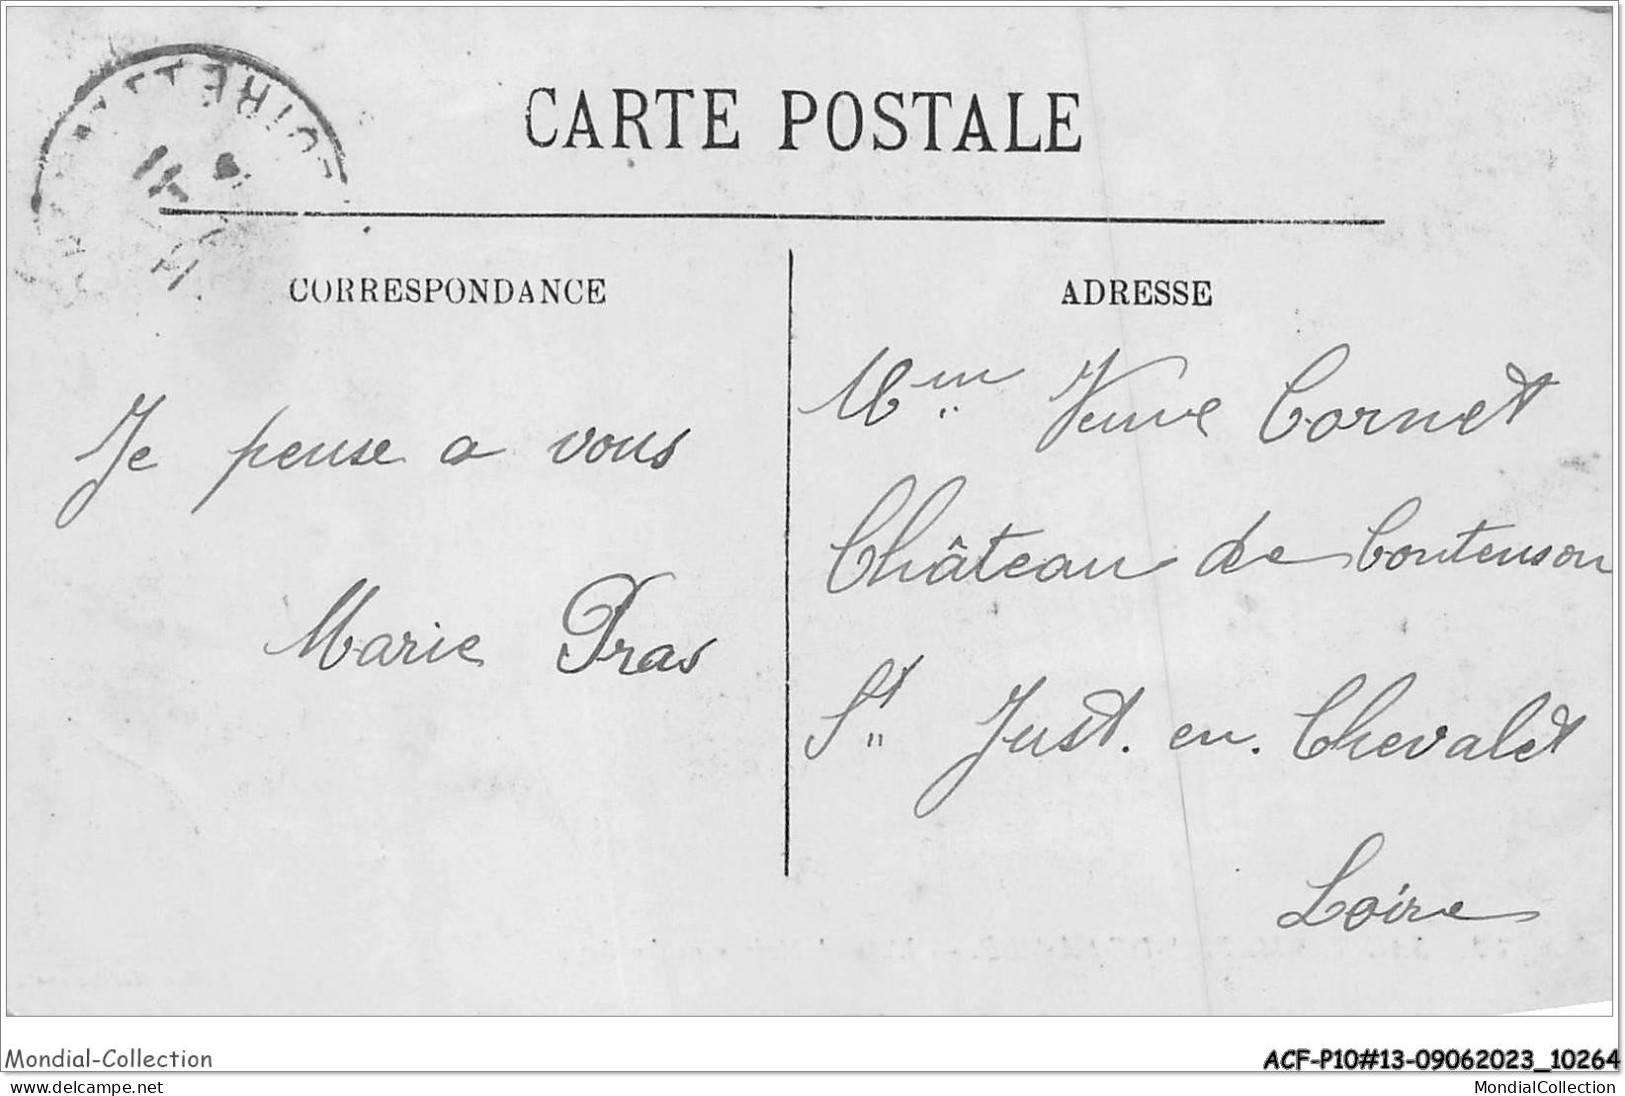 CARTE POSTALE
CORRESPONDANCE
ADRESSE
Je pense a vous
Marie Pras
Mme Veuve Cornet
Château de Contenson
St Just. en. Chevalet
Loire
Mondial-Collection
ACF-P10#13-09062023_10264
www.delcampe.net
MondialCollection